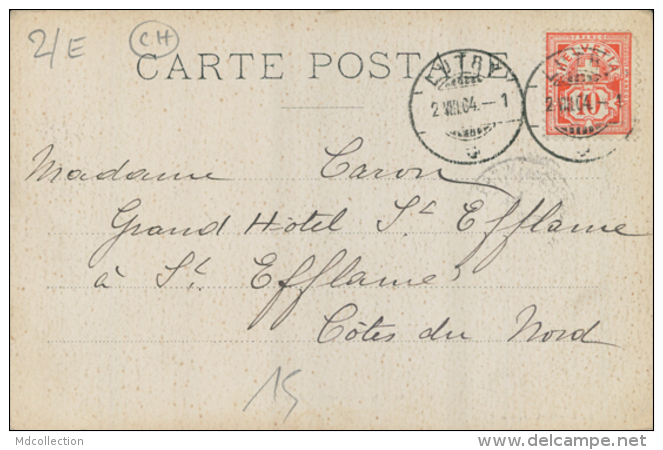 2/E
CH
CARTE POSTALE
LUTRY
2.VIII.04.–1
HELVETIA
FRANCO
10
2.VIII.04.–1
Madame Caron
Grand Hôtel St Efflame
à St Efflame
Côtes du Nord
15
Mdcollection
© delcampe.net